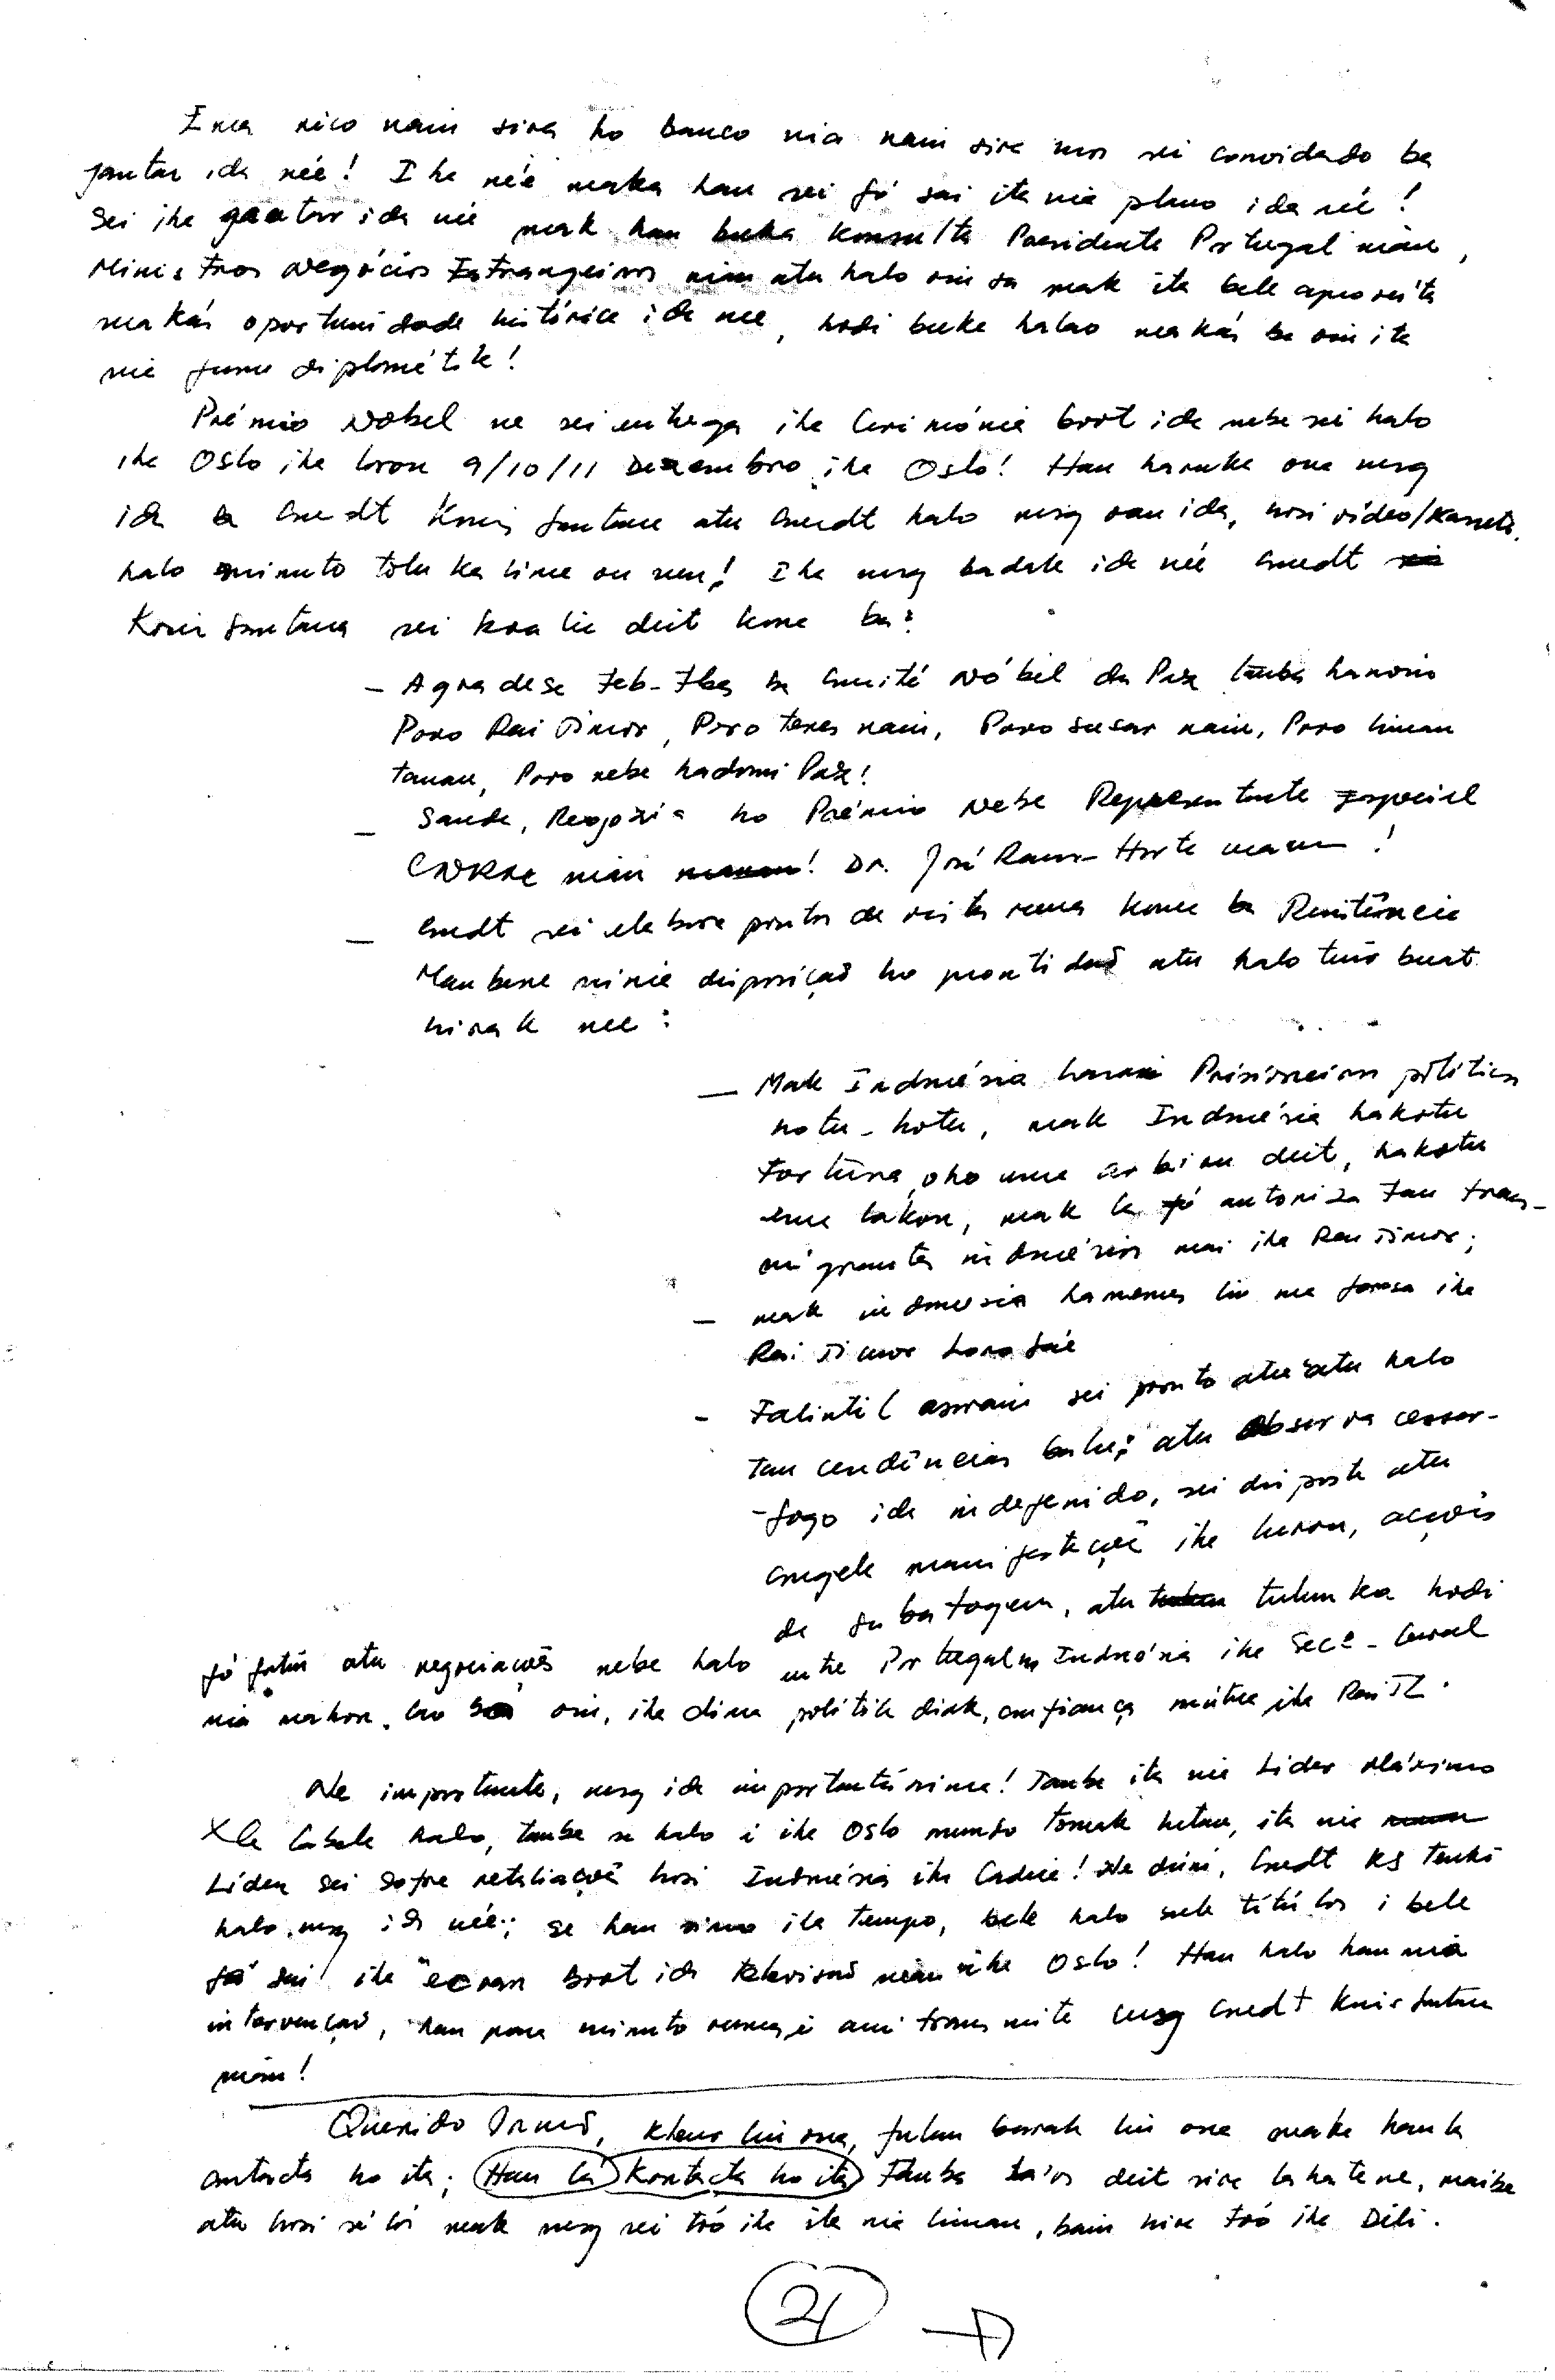 Ema rico nain sira ho banco nia nain sira mos sei convidado ba
jantar ida né'e! Iha né'e maka hau sei fó sai ita nia plano ida né'e!
Sei iha jantar ida né'e mak hau buka konsulta Presidente Portugal nian,
Ministros Negócios Estrangeiros nian atu halo oin sa mak ita bele aproveita
makás oportunidade histórica ida nee, hodi buka halao makás ba oin ita
nia funu diplomátika!
Prémio Nobel ne sei entrega iha Cerimónia boot ida nebe sei halo
iha Oslo iha loron 9/10/11 Dezembro iha Oslo! Hau haruka ona msg
ida ba Cmdt Konis Santana atu Cmdt halo msg oan ida, hosi vídeo/kassete,
halo minuto tolu ka lima ou nen! Iha msg badak ida né'e Cmdt
Konis Santana sei koalia deit kona ba:
- Agradese teb-tbes ba Comité Nóbel da Paz tamba hanoin
Povo Rai Timor, Povo terus nain, Povo susar nain, Povo liman
tanan, Povo nebe hadomi Paz!
- Sauda, Regozija ho Prémio nebe Representante Especial
CNRM nian ! Dr. José Ramos-Horta manan!
- Cmdt sei elabora pontos de vista ruma kona ba Resistência
Maubere ninia disposição ho prontidaõ atu halo tuir buat
hirak nee:
- Mak Indonésia Prisioneiros políticos
hotu-hotu, mak Indonésia hakotu
tortura, oho ema arbiru deit, hakotu
ema lakon, mak la fó autoriza tan trans-
migrantes indonésios mai iha Rai Timor;
- mak indonesia hamenus nia forsa iha
Rai Timor Lorosa'e
- Falintil aswain sei pronto atu halo
tan cendências balu: atu observa cessar-
-fogo ida indefenido, sei disposta atu
congela manifestaçoẽ iha luron, acçoẽs
de sabotagem, atu tulun ka hodi
fó fatin atu negociaçoẽs nebe halo entre Portugal ho Indonésia iha Secº-Geral
nia mahon, lao ba oin, iha clima polítika diak, confiança mútua iha Rai TL.
Ne importante, msg ida importantíssima! Tamba ita nia Lider Máximo
XG labele halo, tamba se halo i iha Oslo mundo tomak hetan, ita nia
Líder sei sofre retaliaçoẽ hosi Indonésia iha Cadeia! Ne duni, Cmdt KS tenki
halo msg ida né'e; se hau simu iha tempo, bele halo sub títúlos i bele
fó sai iha ecran boot ida televisaõ nian iha Oslo! Hau halo hau nia
intervençaõ, hau para minuto ruma, i ami transmite msg Cmdt Konis Santana
nian!
Querido Irmaõ, kleur liu ona, fulan barak liu ona maka hau la
contacta ho ita; Hau la kontacta ho ita tamba deit sira la hatene, maibe
atu hosi sé los mak msg sei tó iha ita nia liman, bain hira tó iha Dili.
21